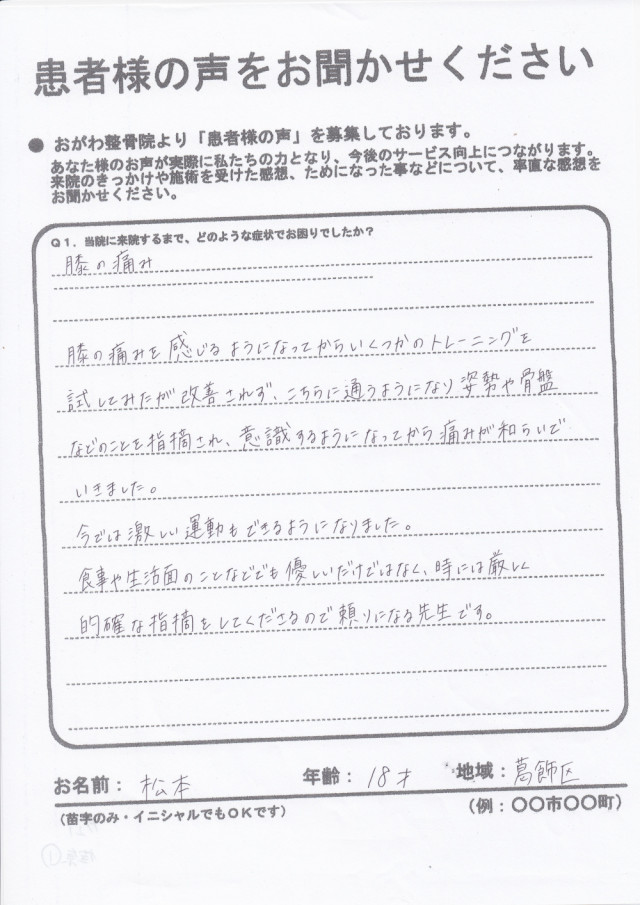 患者様の声をお聞かせください
● おがわ整骨院より「患者様の声」を募集しております。
あなた様のお声が実際に私たちの力となり、今後のサービス向上につながります。
来院のきっかけや施術を受けた感想、ためになった事などについて、率直な感想を
お聞かせください。
Q1．当院に来院するまで、どのような症状でお困りでしたか？
膝の痛み
膝の痛みを感じるようになってからいくつかのトレーニングを
試してみたが改善されず、こちらに通うようになり姿勢や骨盤
などのことを指摘され、意識するようになってから痛みが和らいで
いきました。
今では激しい運動もできるようになりました。
食事や生活面のことなどでも優しいだけではなく、時には厳しく
的確な指摘をしてくださるので頼りになる先生です。
お名前： 松本 年齢： 18才 地域： 葛飾区
（苗字のみ・イニシャルでもＯＫです） （例：〇〇市〇〇町）